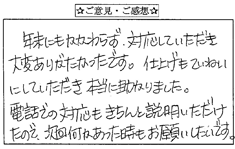 ☆ご意見・ご感想☆
年末にもかかわらず、対応していただき
大変ありがたかったです。仕上げもていねい
にしていただき本当に助かりました。
電話での対応もきちんと説明いただけ
たので、次回何かあった時もお願いしたいです。